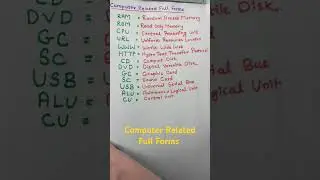 Computer Related Full Forms
RAM = Random Access Memory
ROM = Read Only Memory
CPU = Central Processing Unit
URL = Uniform Resource Locator
WWW = World Wide Web
HTTP = Hyper Text Transfer Protocol
CD = Compact Disk
DVD = Digital Versatile Disk
GC = Graphic Card
SC = Sound Card
USB = Universal Serial Bus
ALU = Arithmetic Logical Unit
CU = Control Unit
DVD =
GC =
SC =
USB =
ALU =
CU =
Disk
Serial Bus
Logical Unit
Computer Related
Full Forms